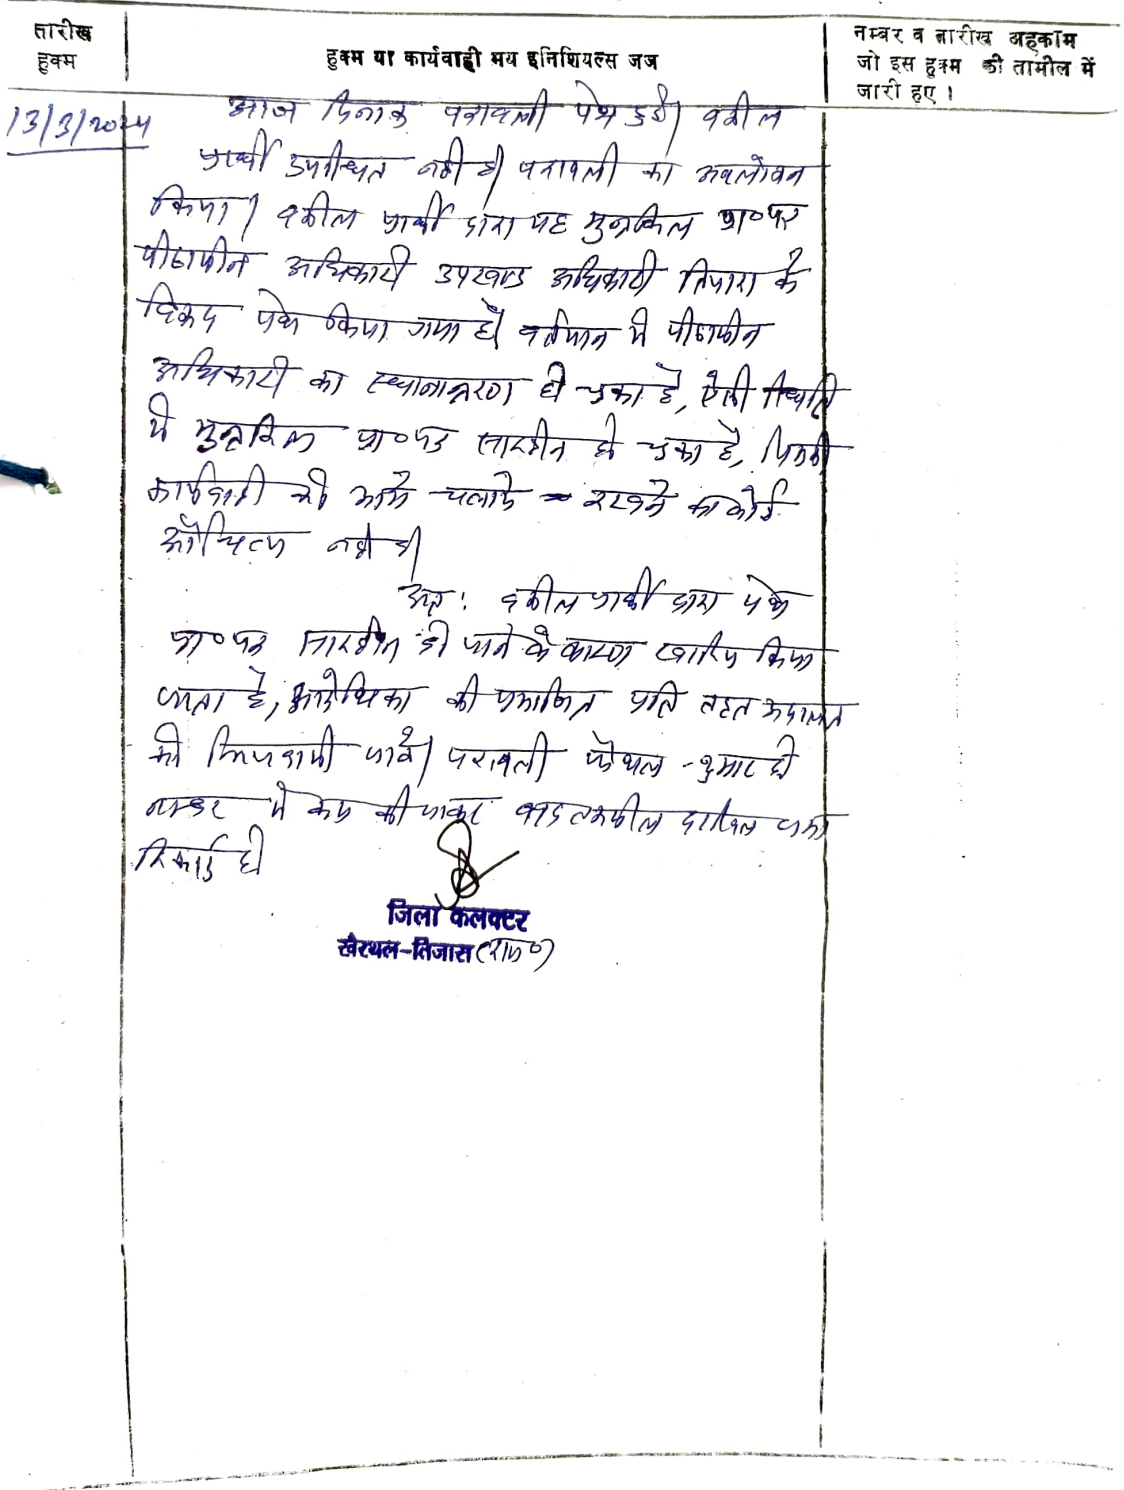 तारीख
हुक्म
हुक्म या कार्यवाही मय इनिशियल्स जज
नम्बर व तारीख अहकाम
जो इस हुक्म की तामील में
जारी हुए ।
13/3/2024
आज दिनांक पत्रावली पेश हुई। वकील
प्रार्थी उपस्थित नही है। पत्रावली का अवलोकन
किया। वकील प्रार्थी द्वारा यह मुन्तकिल प्रा०पत्र
पीठासीन अधिकारी उपखण्ड अधिकारी तिजारा के
विरूद्ध पेश किया गया है। वर्तमान मे पीठासीन
अधिकारी का स्थानान्तरण हो चुका है, ऐसी स्थिति
मे मुन्तकिल प्रा०पत्र सारहीन हो चुका है, जिसकी
कार्यवाही को आगे चलाये रखने का कोई
औचित्य नही है।
अतः वकील प्रार्थी द्वारा पेश
प्रा०पत्र सारहीन हो जाने के कारण खारिज किया
जाता है, की प्रमाणित प्रति तहत अदालत
को भिजवायी जावे। पत्रावली फैसल शुमार हो
नम्बर से कम की जाकर बाद तकमील दाखिल
रिकार्ड हो
जिला कलक्टर
खैरथल-तिजारा (राज०)